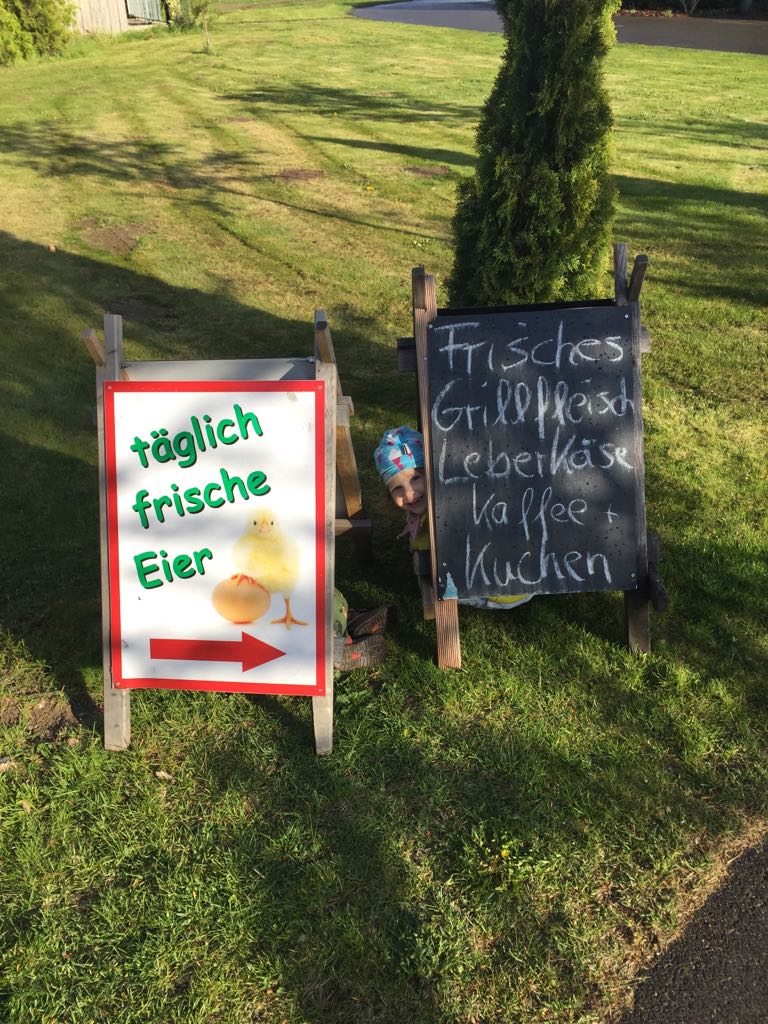 täglich
frische
Eier
Frisches
Grillfleisch
Leberkäse
Kaffee +
Kuchen